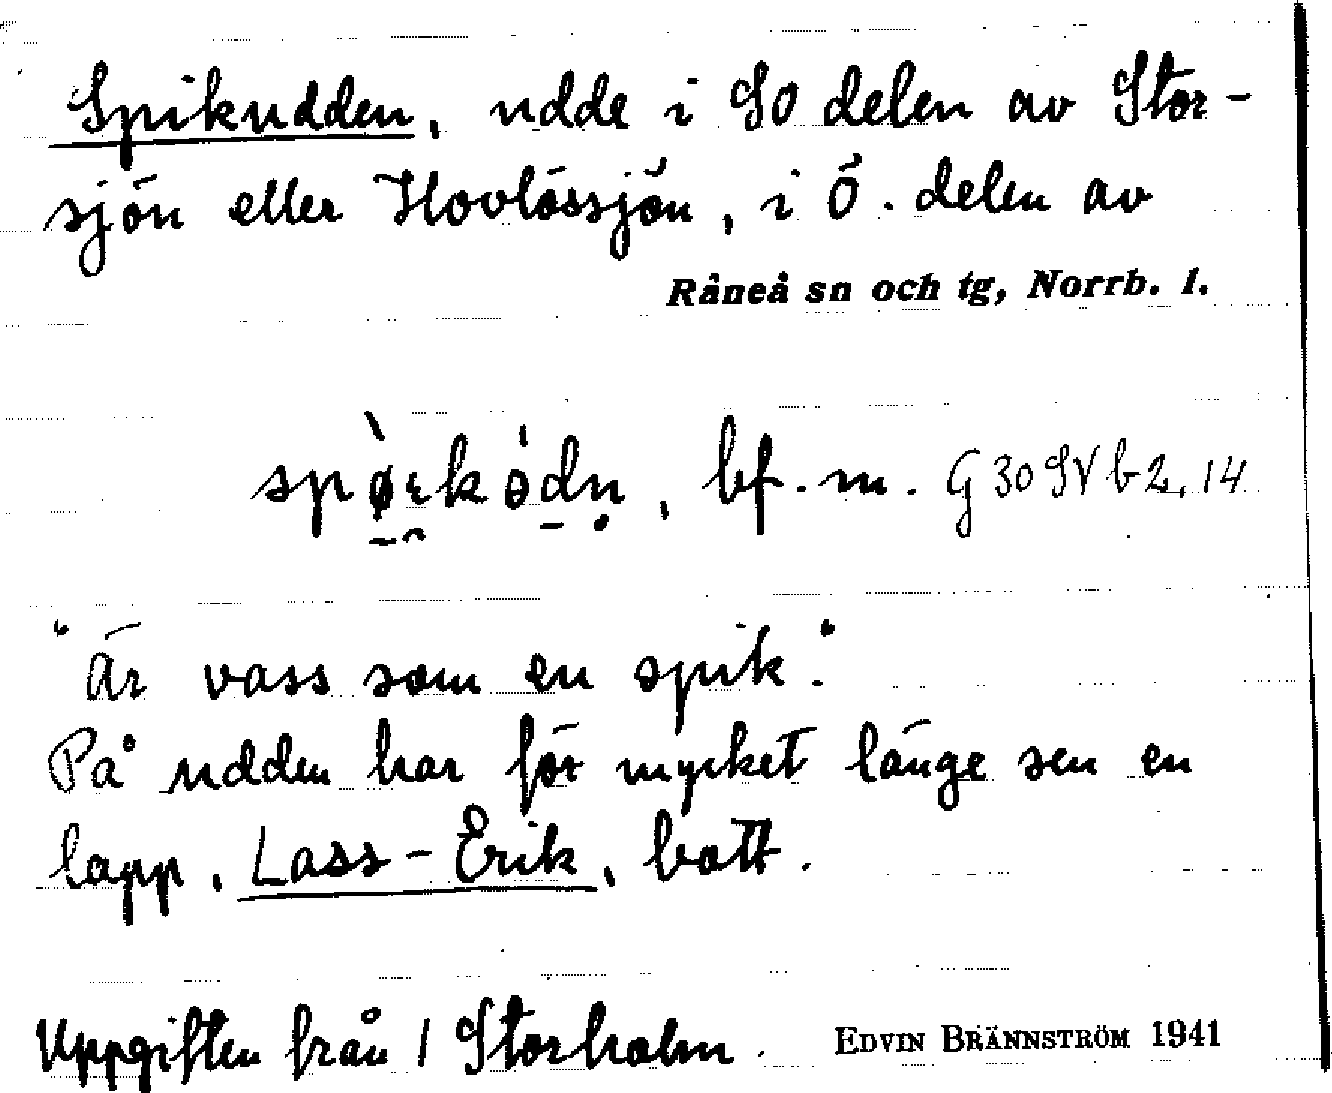 Spikudden, udde i SO delen av Stor-
sjön eller Hovlössjön, i Ö. delen av
Råneå sn och tg, Norrb. l.
bf. m. G 30 SV b 2, 14
"Är vass som en spik".
På udden har för mycket länge sen en
lapp, Lass-Erik, bott.
Uppgiften från 1 Storholm. EDVIN BRÄNNSTRÖM 1941